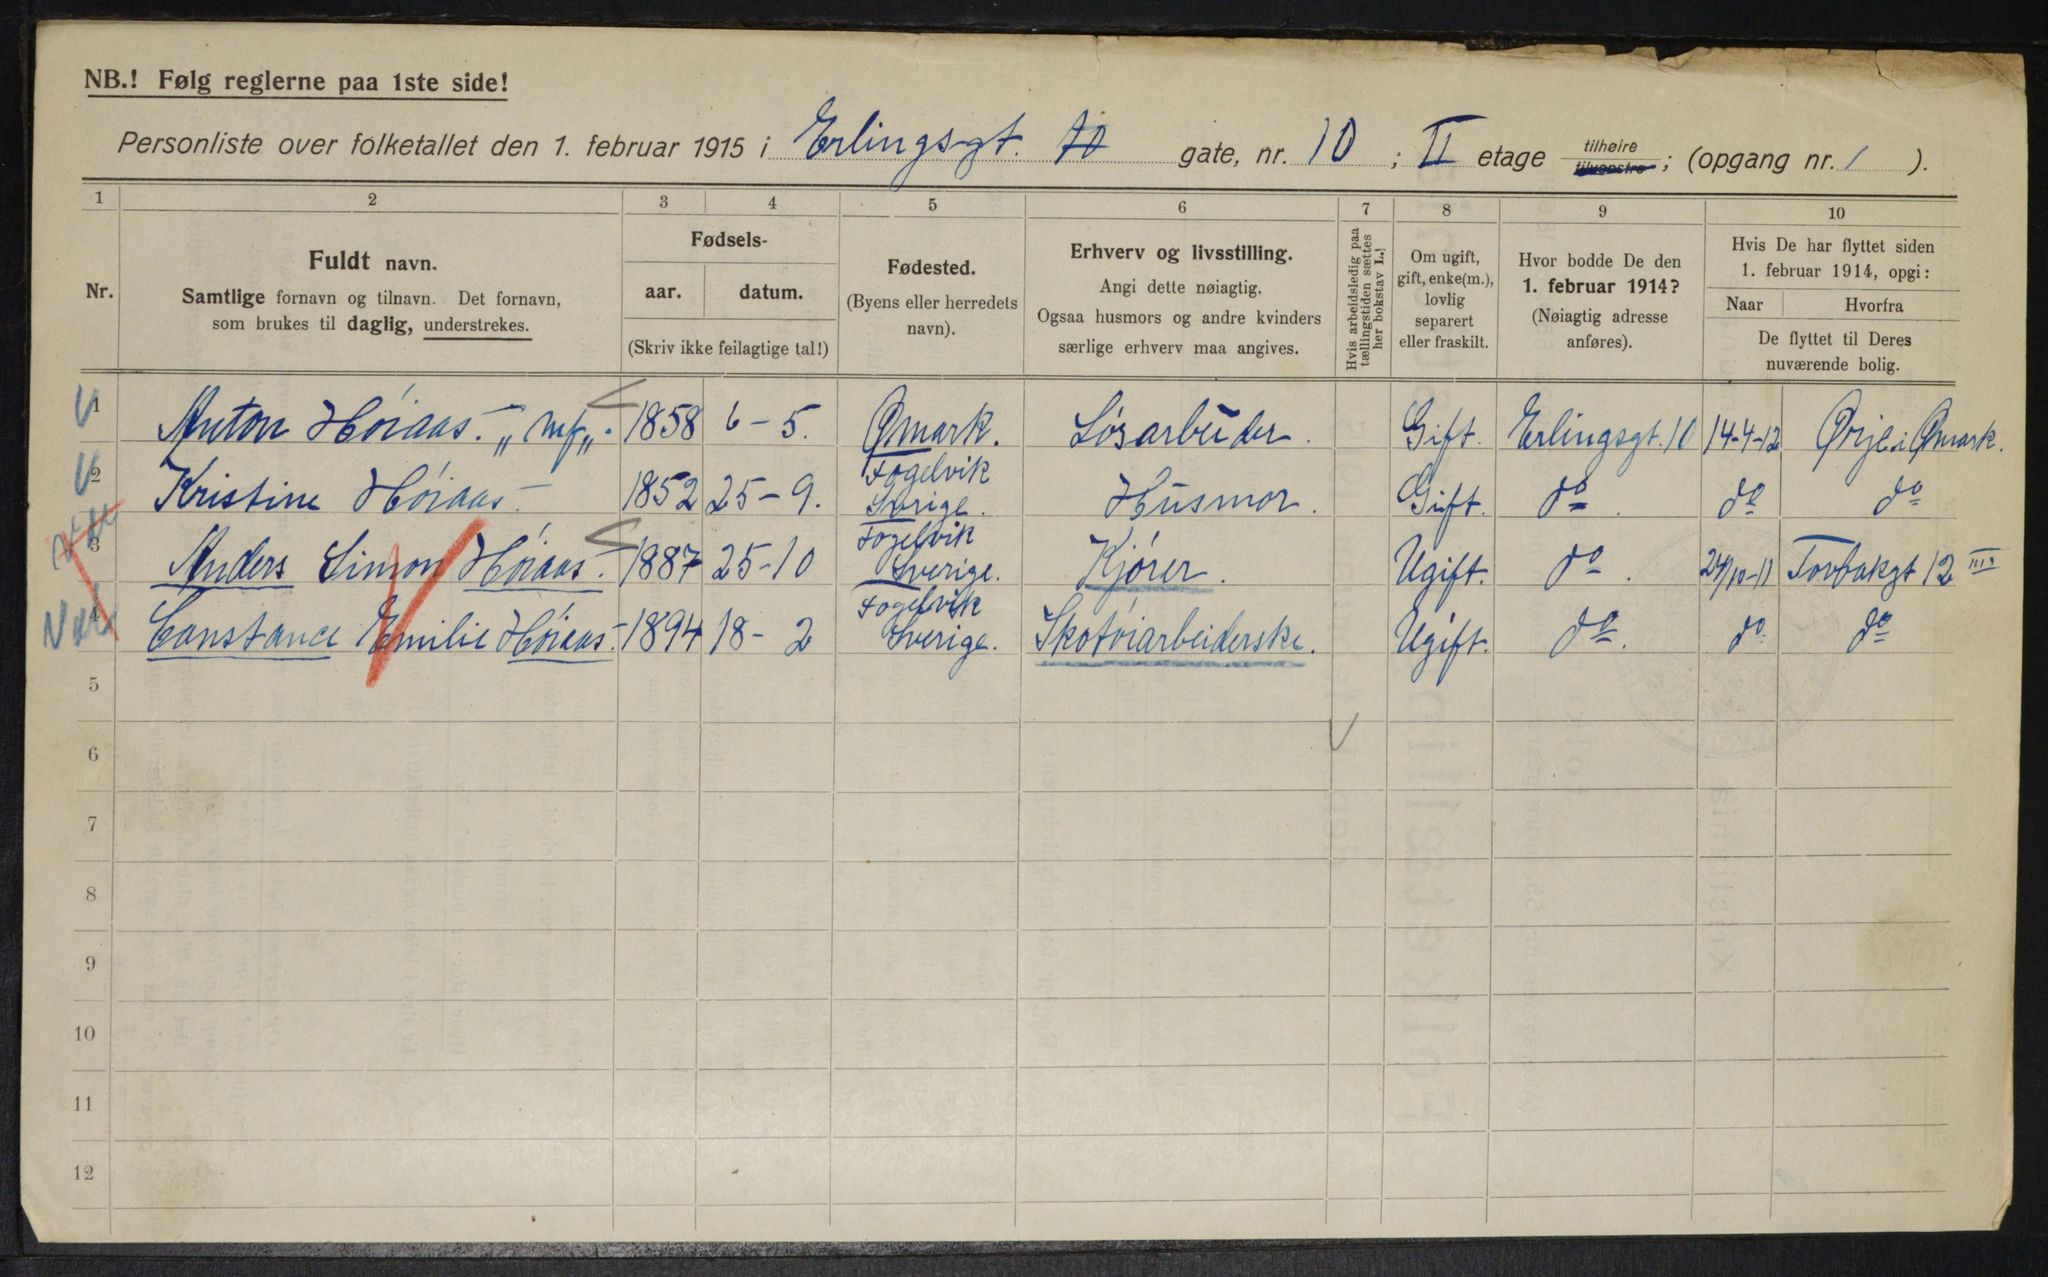 NB.! Følg reglerne paa 1ste side!
Personliste over folketallet den 1. februar 1915 i Erlingsgt. 10 gate, nr. 10 ; II etage tilhøire tilvenstre ; (opgang nr. 1 ).
1 2 3 4 5 6 7 8 9 10
Nr.
Fuldt navn.
Samtlige fornavn og tilnavn. Det fornavn,
som brukes til daglig, understrekes.
Fødsels-
aar. datum.
(Skriv ikke feilagtige tal!)
Fødested.
(Byens eller herredets
navn).
Erhverv og livsstilling.
Angi dette nøiagtig.
Ogsaa husmors og andre kvinders
særlige erhverv maa angives.
Hvis arbeidsledig paa
tællingstiden sættes
her bokstav L.!
Om ugift,
gift, enke(m.),
lovlig
separert
eller fraskilt.
Hvor bodde De den
1. februar 1914?
(Nøiagtig adresse
anføres).
Hvis De har flyttet siden
1. februar 1914, opgi:
Naar Hvorfra
De flyttet til Deres
nuværende bolig.
1 Anton Hóiaas. 1858 6-5. Ømark. Løsarbeider. Gift. Erlingsgt. 10 14-4-12 Ørje i Ømark.
2 Kristine Hóiaas 1852 25-9. Fogelvik Sverige. Husmor. Gift. do. do do
3 Anders Simon Hóiaas. 1887 25-10 Fogelvik Sverige. Kjórer. Ugift. do. 24/10-11 Torbakgt 12 III
4 Constance Emilie Hóiaas. 1894 18-2 Fogelvik Sverige. Skotóiarbeiderske. Ugift. do. do do
5
6
7
8
9
10
11
12